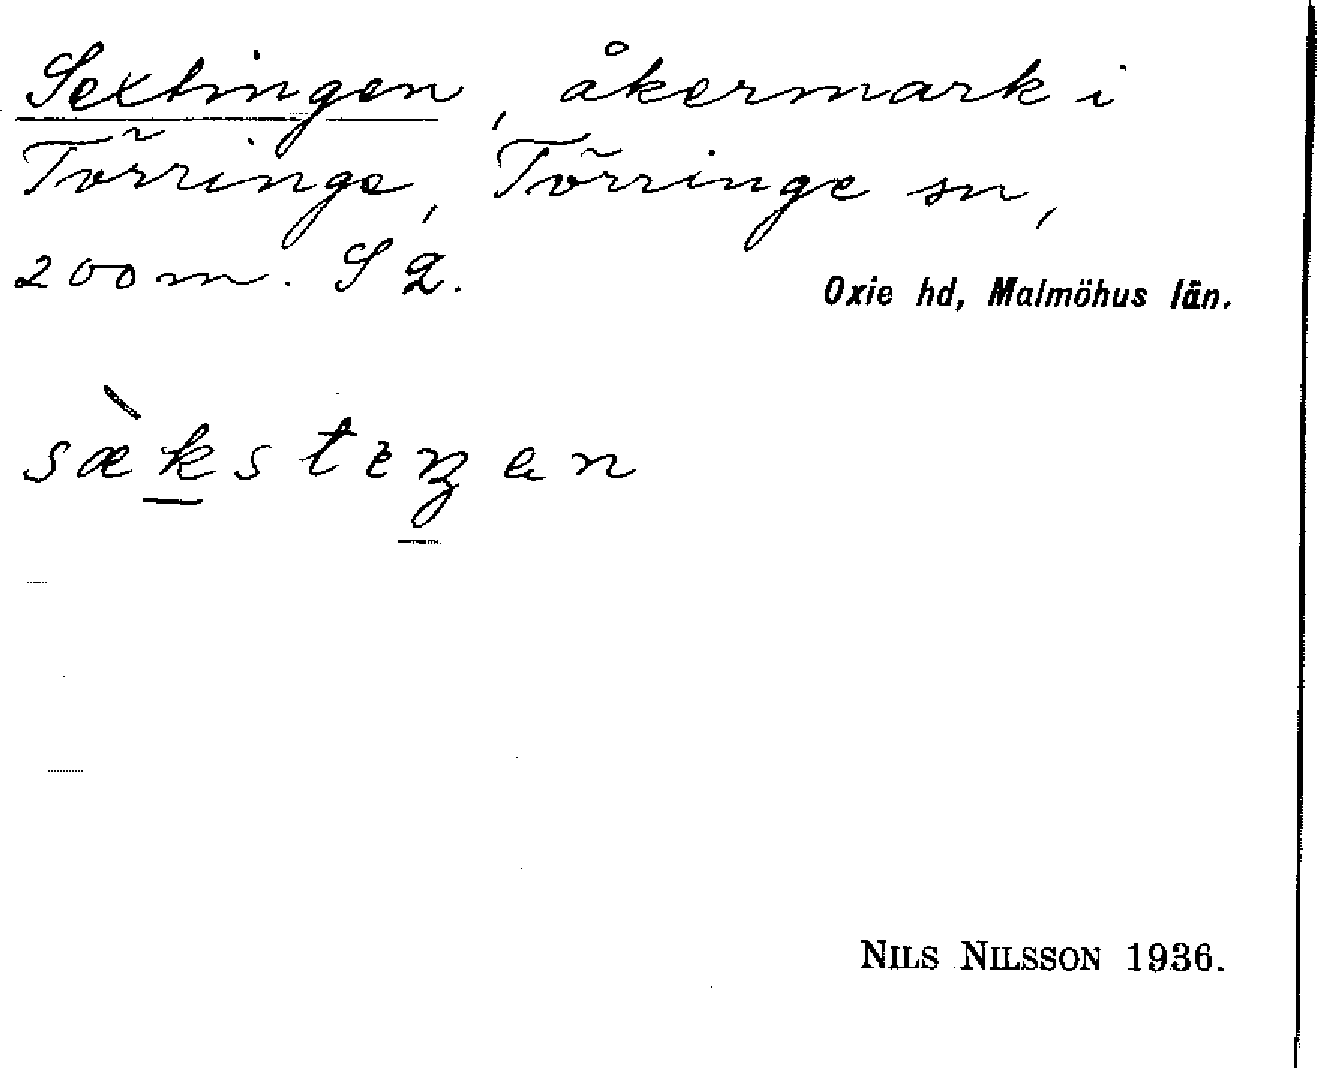 Sextingen, åkermark i
Törringe, Törringe sn,
200 m. S 2.
Oxie hd, Malmöhus län.
sæ̀kstɪŋən
NILS NILSSON 1936.